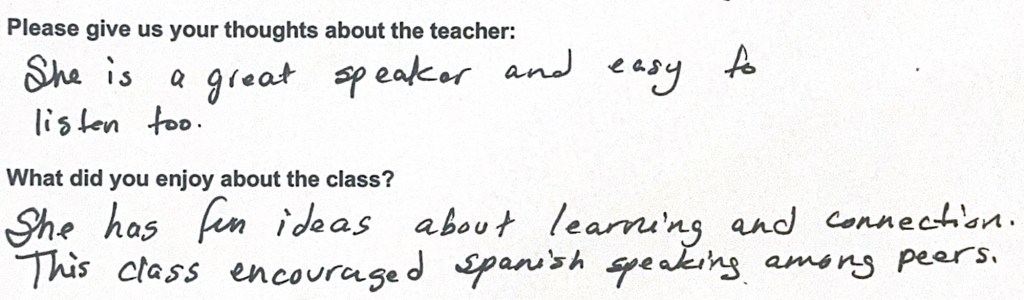 Please give us your thoughts about the teacher:
She is a great speaker and easy to
listen too.
What did you enjoy about the class?
She has fun ideas about learning and connection.
This class encouraged spanish speaking among peers.